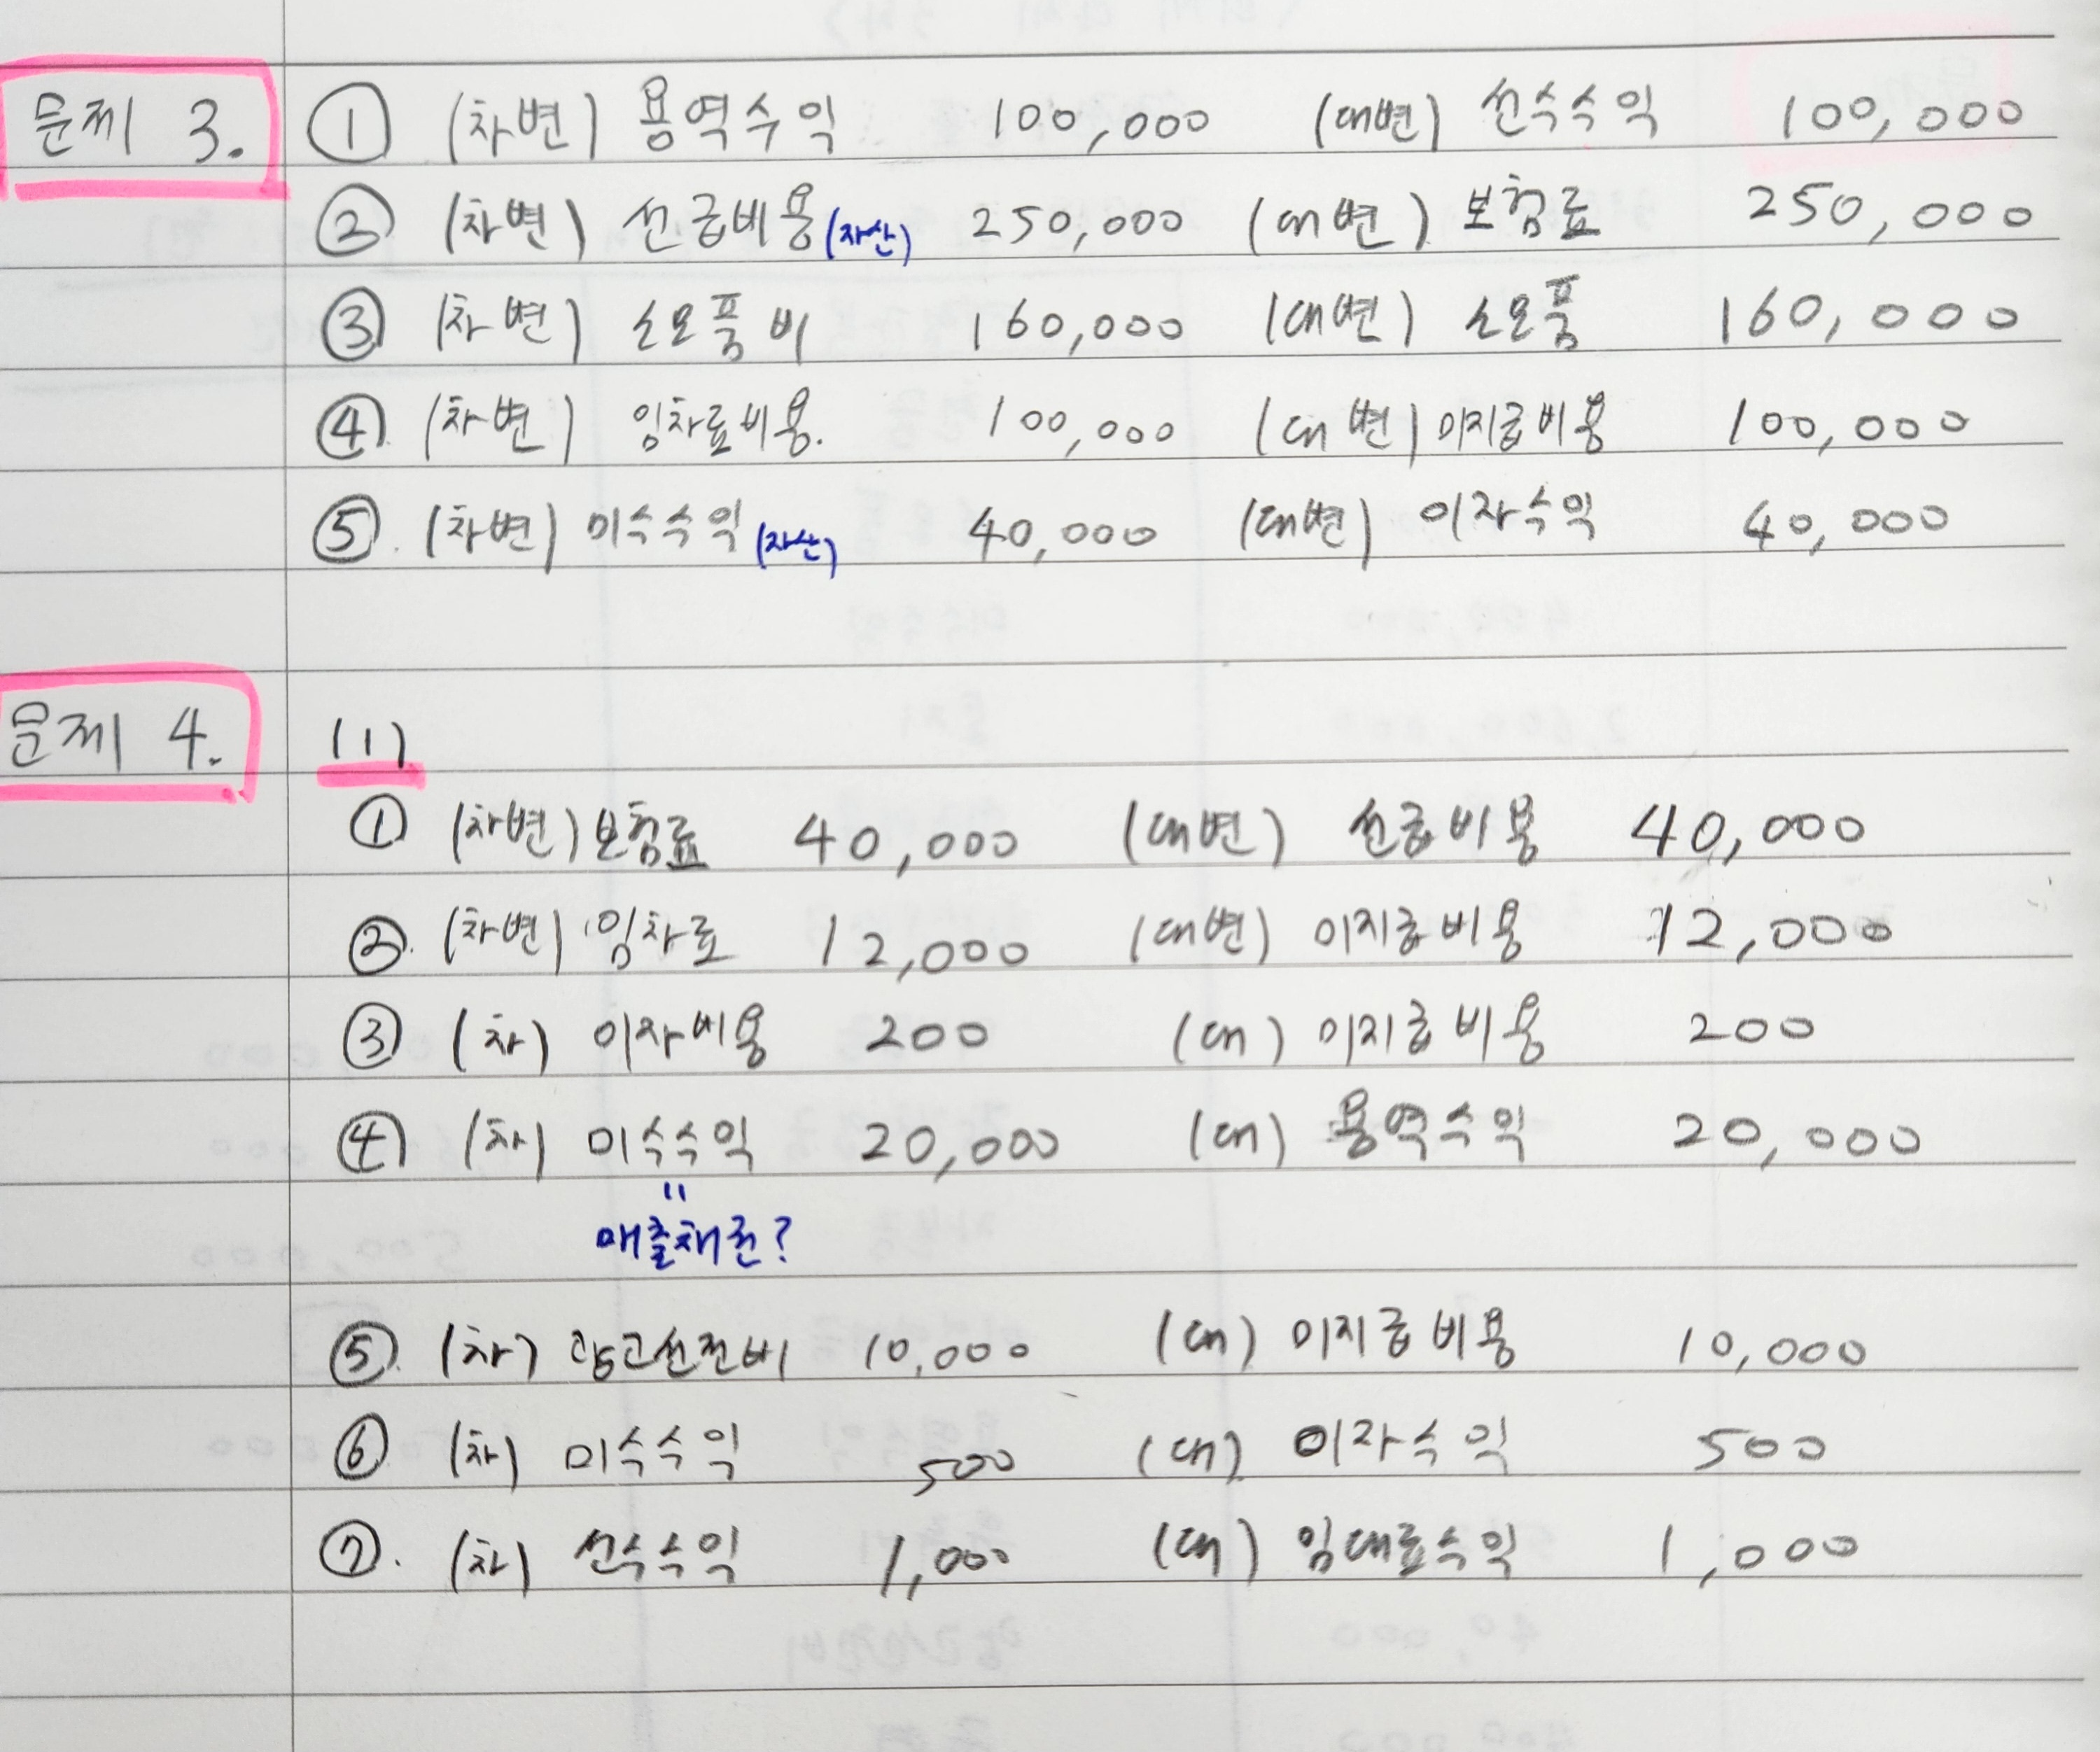 문제 3. ① (차변) 용역수익 100,000 (대변) 선수수익 100,000
② (차변) 선급비용(자산) 250,000 (대변) 보험료 250,000
③ (차변) 소모품비 160,000 (대변) 소모품 160,000
④ (차변) 임차료비용. 100,000 (대변) 미지급비용 100,000
⑤ (차변) 미수수익(자산) 40,000 (대변) 이자수익 40,000
문제 4. (1)
① (차변) 보험료 40,000 (대변) 선급비용 40,000
② (차변) 임차료 12,000 (대변) 미지급비용 12,000
③ (차) 이자비용 200 (대) 미지급비용 200
④ (차) 미수수익 20,000 (대) 용역수익 20,000
"
매출채권?
⑤ (차) 광고선전비 10,000 (대) 미지급비용 10,000
⑥ (차) 미수수익 500 (대) 이자수익 500
⑦. (차) 선수수익 1,000 (대) 임대료수익 1,000